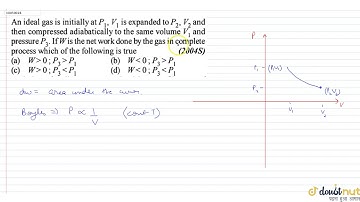 An ideal gas is initially at P₁, V₁ is expanded to P₂, V₂ and
then compressed adiabatically to the same volume V₁ and
pressure P₃. If W is the net work done by the gas in complete
process which of the following is true (2004S)
(a) W > 0 ; P₃ > P₁ (b) W < 0 ; P₃ > P₁
(c) W > 0 ; P₃ < P₁ (d) W < 0 ; P₃ < P₁
dw = area under the curve
Boyles ⇒ P ∝ 1/V (const T)
P
P₁
(P₁V₁)
P₂
(P₂V₂)
V₁
V₂
V
doubtnut